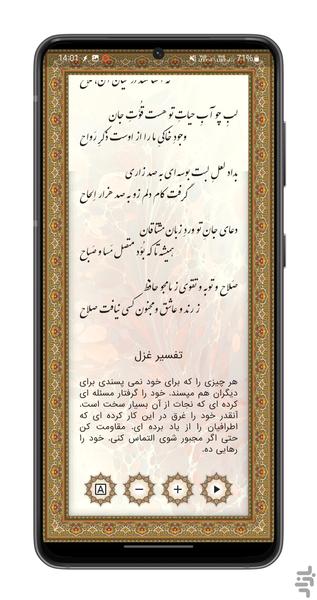 14:01
71%
لبِ چو آبِ حیاتِ تو هست قُوَّتِ جان
وجودِ خاکیِ ما را از اوست ذکرِ رَواح
بداد لعلِ لبت بوسه‌ای به صد زاری
گرفت کامِ دلم زو به صد هزار اِلحاح
دعایِ جانِ تو وردِ زبانِ مشتاقان
همیشه تا که بُوَد متصل مَسا و صَباح
صلاح و توبه و تقوی ز ما مجو حافظ
ز رند و عاشق و مجنون کسی نیافت صلاح
تفسیر غزل
هر چیزی را که برای خود نمی پسندی برای
دیگران هم میسند. خود را گرفتار مسئله ای
کرده ای که نجات از آن بسیار سخت است.
آنقدر خود را غرق در این کار کرده ای که
اطرافیان را از یاد برده ای. مقاومت کن
حتی اگر مجبور شوی التماس کنی. خود را
رهایی ده.
A
بازار